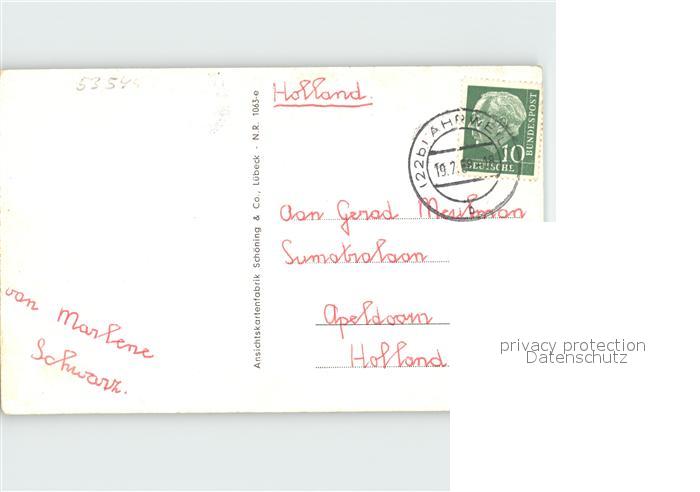 Holland.
BUNDESPOST
10
DEUTSCHE
(22b) AHRWEIL
19.7.
b
Aan Gerad Meulman
Sumatralaan
Apeldoorn
Holland
van Marlene
Schwarz.
Ansichtskartenfabrik Schöning & Co., Lübeck - N.R. 1063-e
privacy protection
Datenschutz